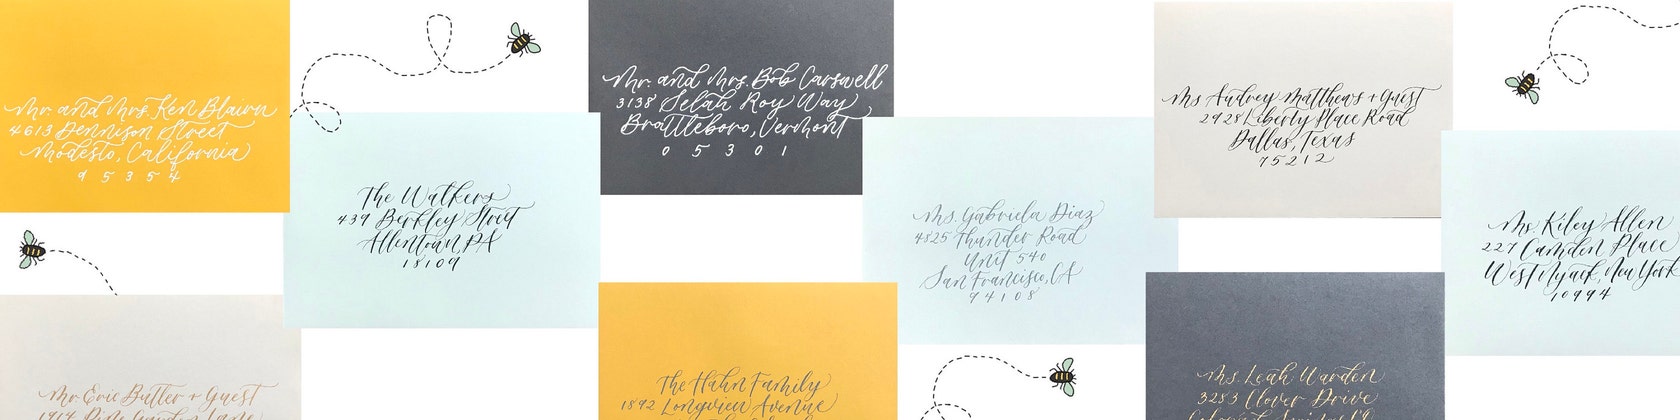 Mr. and Mrs. Ken Blairn
4613 Dennison Street
Modesto, California
95354
The Walkers
439 Berkley Street
Allentown, PA
18109
Mr. Eric Butler + Guest
Mr. and Mrs. Bob Carswell
3138 Selah Roy Way
Brattleboro, Vermont
05301
The Hahn Family
1892 Longview Avenue
Ms. Gabriela Diaz
4825 Thunder Road
Unit 540
San Francisco, CA
94108
Ms Audrey Matthews + Guest
2928 Liberty Place Road
Dallas, Texas
75212
Ms. Leah Warden
3283 Clover Drive
Ms. Kiley Allen
227 Camden Place
West Nyack, New York
10994